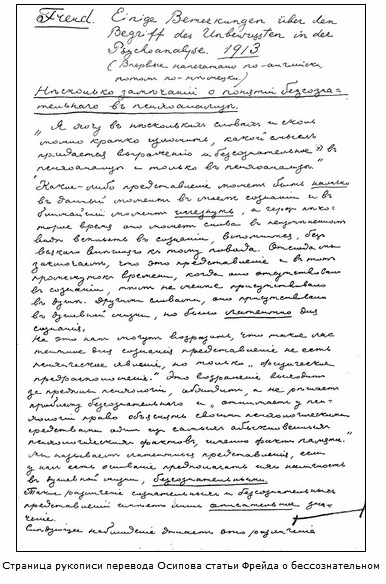 Freud. Einige Bemerkungen über den
Begriff des Unbewussten in der
Psychoanalyse. 1913
(Впервые напечатано по-английски,
потом по-нѣмецки.)
Нѣсколько замѣчаній о понятіи безсозна-
тельнаго въ психоанализѣ.
„Я могу въ нѣсколькихъ словахъ и сколь
можно кратко изложить, какой смыслъ
придается выраженію „безсознательное" въ
психоанализѣ и только въ психоанализѣ.
Какое-либо представленіе можетъ быть
въ данный моментъ въ моемъ сознаніи и въ
ближайшій моментъ исчезнуть, а черезъ нѣко-
торое время оно можетъ снова въ
видѣ всплыть въ сознаніи, безъ
всякаго къ тому повода. Отсюда мы
заключаемъ, что это представленіе и въ тотъ
промежутокъ времени, когда оно отсутствовало
въ сознаніи, тѣмъ не менѣе присутствовало
въ душѣ. Другими словами, оно присутствовало
въ душевной жизни, но было латентно для
сознанія.
На это намъ могутъ возразить, что такое ла-
тентное для сознанія представленіе не есть
психическое явленіе, но только „физическое
предрасположеніе". Это возраженіе выходитъ
за предѣлы психологіи, и не рѣшаетъ
проблему безсознательнаго и „отнимаетъ у пси-
хологіи право объяснять своими психологическими
средствами одинъ изъ самыхъ обыкновенныхъ
психологическихъ фактовъ, именно фактъ памяти."
Мы называемъ латентныя представленія, если
у насъ есть основаніе предполагать ихъ наличность
въ душевной жизни, безсознательными.
Такое различеніе сознательныхъ и безсознательныхъ
представленій имѣетъ описательное зна-
ченіе.
Слѣдующее наблюденіе это различеніе
Страница рукописи перевода Осипова статьи Фрейда о бессознательном